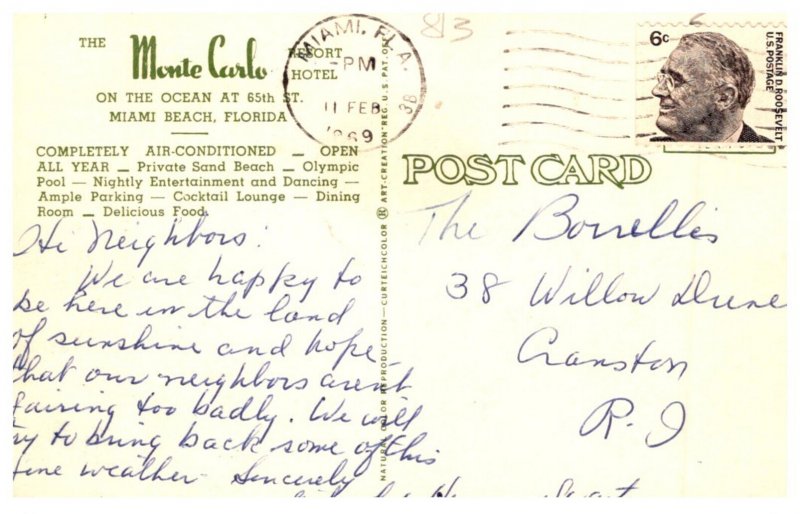 THE Monte Carlo RESORT HOTEL
ON THE OCEAN AT 65th ST.
MIAMI BEACH, FLORIDA
COMPLETELY AIR-CONDITIONED — OPEN
ALL YEAR — Private Sand Beach — Olympic
Pool — Nightly Entertainment and Dancing —
Ample Parking — Cocktail Lounge — Dining
Room — Delicious Food
Hi Neighbors!
We are happy to
be here in the land
of sunshine and hope
that our neighbors aren't
fairing too badly. We will
try to bring back some of this
fine weather Sincerely
NATURAL COLOR REPRODUCTION—CURTEICHCOLOR ® ART-CREATION "REG. U.S. PAT. OFF.
MIAMI, FLA.
PM
11 FEB
1969
3B
813
6c
FRANKLIN D. ROOSEVELT
U.S. POSTAGE
POST CARD
The Borrellis
38 Willow Drive
Cranston
R.I